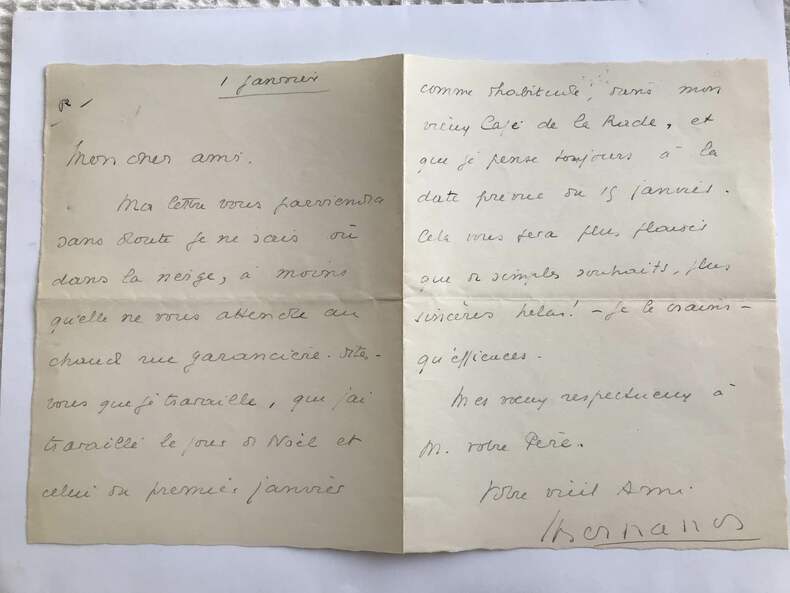 1 janvier
R
Mon cher ami.
Ma lettre vous parviendra
sans doute je ne sais où
dans la neige, à moins
qu'elle ne vous attende au
chaud rue Garancière. Dites-
vous que je travaille, que j'ai
travaillé le jour de Noël et
celui du premier janvier
comme d'habitude, dans mon
vieux Café de la Rade, et
que je pense toujours à la
date prévue du 15 janvier.
Cela vous fera plus plaisir
que de simples souhaits, plus
sincères hélas! – je le crains –
qu'efficaces.
Mes vœux respectueux à
M. votre Père.
Votre vieil Ami.
Bernanos